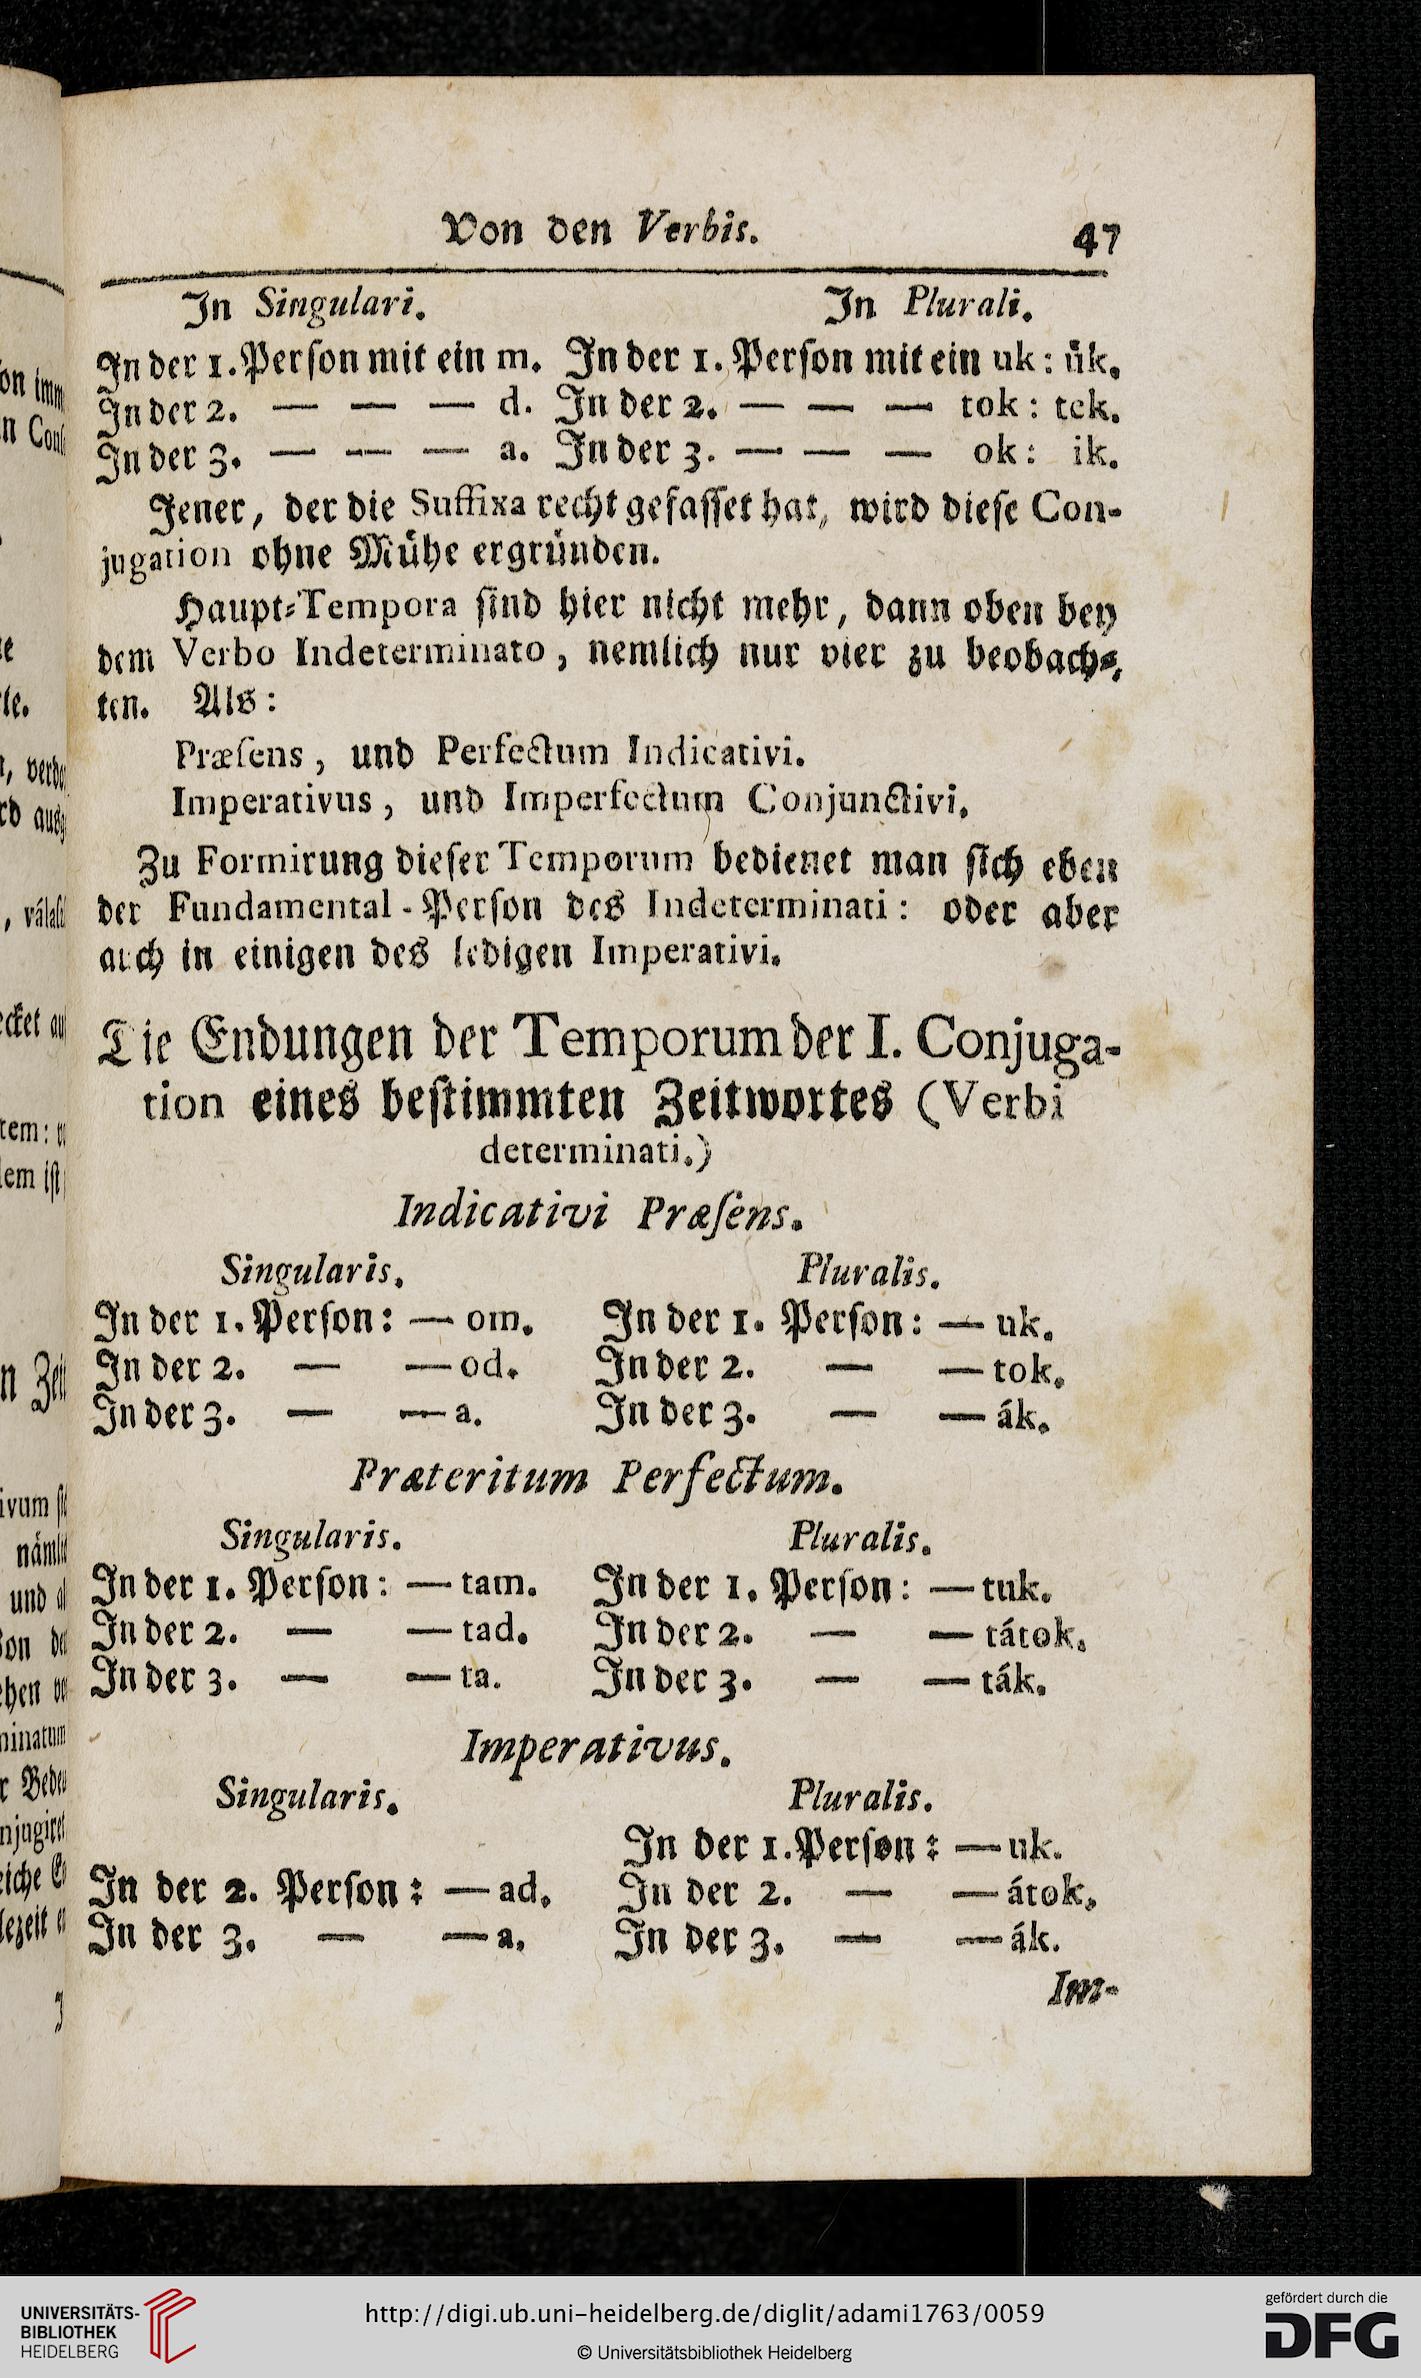 Von den Verbis. 47
In Singulari. In Plurali.
In der 1. Perſon mit ein m. In der 1. Perſon mit ein uk: ük.
In der 2. — — — d. In der 2. — — — tok: tek.
In der 3. — — — a. In der 3. — — — ok: ik.
Jener, der die Suffixa recht gefaſſet hat, wird dieſe Con-
jugation ohne Mühe ergründen.
Haupt-Tempora ſind hier nicht mehr, dann oben bey
dem Verbo Indeterminato, nemlich nur vier zu beobach-
ten. Als:
Præſens, und Perfectum Indicativi.
Imperativus, und Imperfectum Conjunctivi.
Zu Formirung dieſer Temporum bedienet man ſich eben
der Fundamental-Perſon des Indeterminati: oder aber
auch in einigen des ledigen Imperativi.
Die Endungen der Temporum der I. Conjuga-
tion eines beſtimmten Zeitwortes (Verbi
determinati.)
Indicativi Præſens.
Singularis. Pluralis.
In der 1. Perſon: — om. In der 1. Perſon: — uk.
In der 2. — — od. In der 2. — — tok.
In der 3. — — a. In der 3. — — ák.
Præteritum Perfectum.
Singularis. Pluralis.
In der 1. Perſon: — tam. In der 1. Perſon: — tuk.
In der 2. — — tad. In der 2. — — tátok.
In der 3. — — ta. In der 3. — — ták.
Imperativus.
Singularis. Pluralis.
In der 1. Perſon: — uk.
In der 2. Perſon: — ad. In der 2. — — átok.
In der 3. — — a. In der 3. — — ák.
Im-
UNIVERSITÄTS-
BIBLIOTHEK
HEIDELBERG
http://digi.ub.uni-heidelberg.de/diglit/adami1763/0059
© Universitätsbibliothek Heidelberg
gefördert durch die
DFG